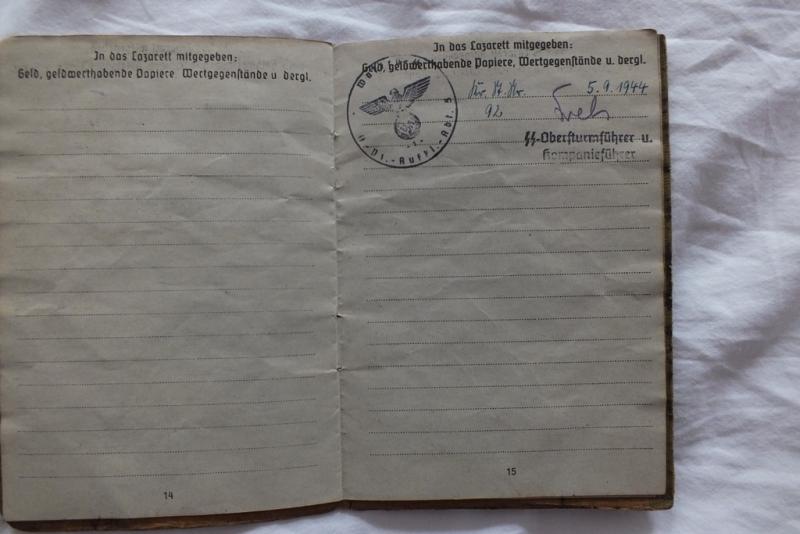 In das Lazarett mitgegeben:
Geld, geldwerthabende Papiere, Wertgegenstände u. dergl.
14
In das Lazarett mitgegeben:
Geld, geldwerthabende Papiere, Wertgegenstände u. dergl.
5.9.1944
92
SS-Obersturmführer u.
Kompanieführer
15